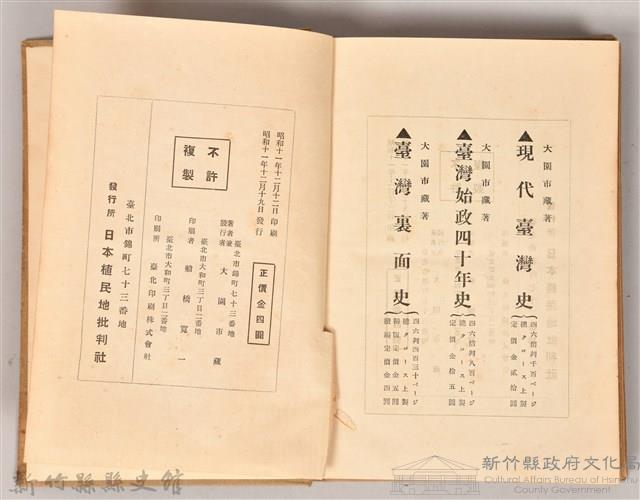 ▲現代臺灣史
大園市藏著
四六倍判千百ページ
總クロース上製
定價金貳拾圓
▲臺灣始政四十年史
大園市藏著
四六倍判八百ページ
總クロース上製
定價金拾五圓
▲臺灣裏面史
大園市藏著
四六判四百三十ページ
總クロース上製
特製定價金五圓
續編定價金四圓
正價金四圓
昭和十一年十二月十二日印刷
昭和十一年十二月十九日發行
不許
複製
臺北市錦町七十三番地
著者兼
發行者 大園市藏
臺北市大和町三丁目二番地
印刷者 船橋寬一
臺北市大和町三丁目二番地
印刷所 臺北印刷株式會社
臺北市錦町七十三番地
發行所 日本植民地批判社
新竹縣縣史館
新竹縣政府文化局
Cultural Affairs Bureau of Hsinchu
County Government